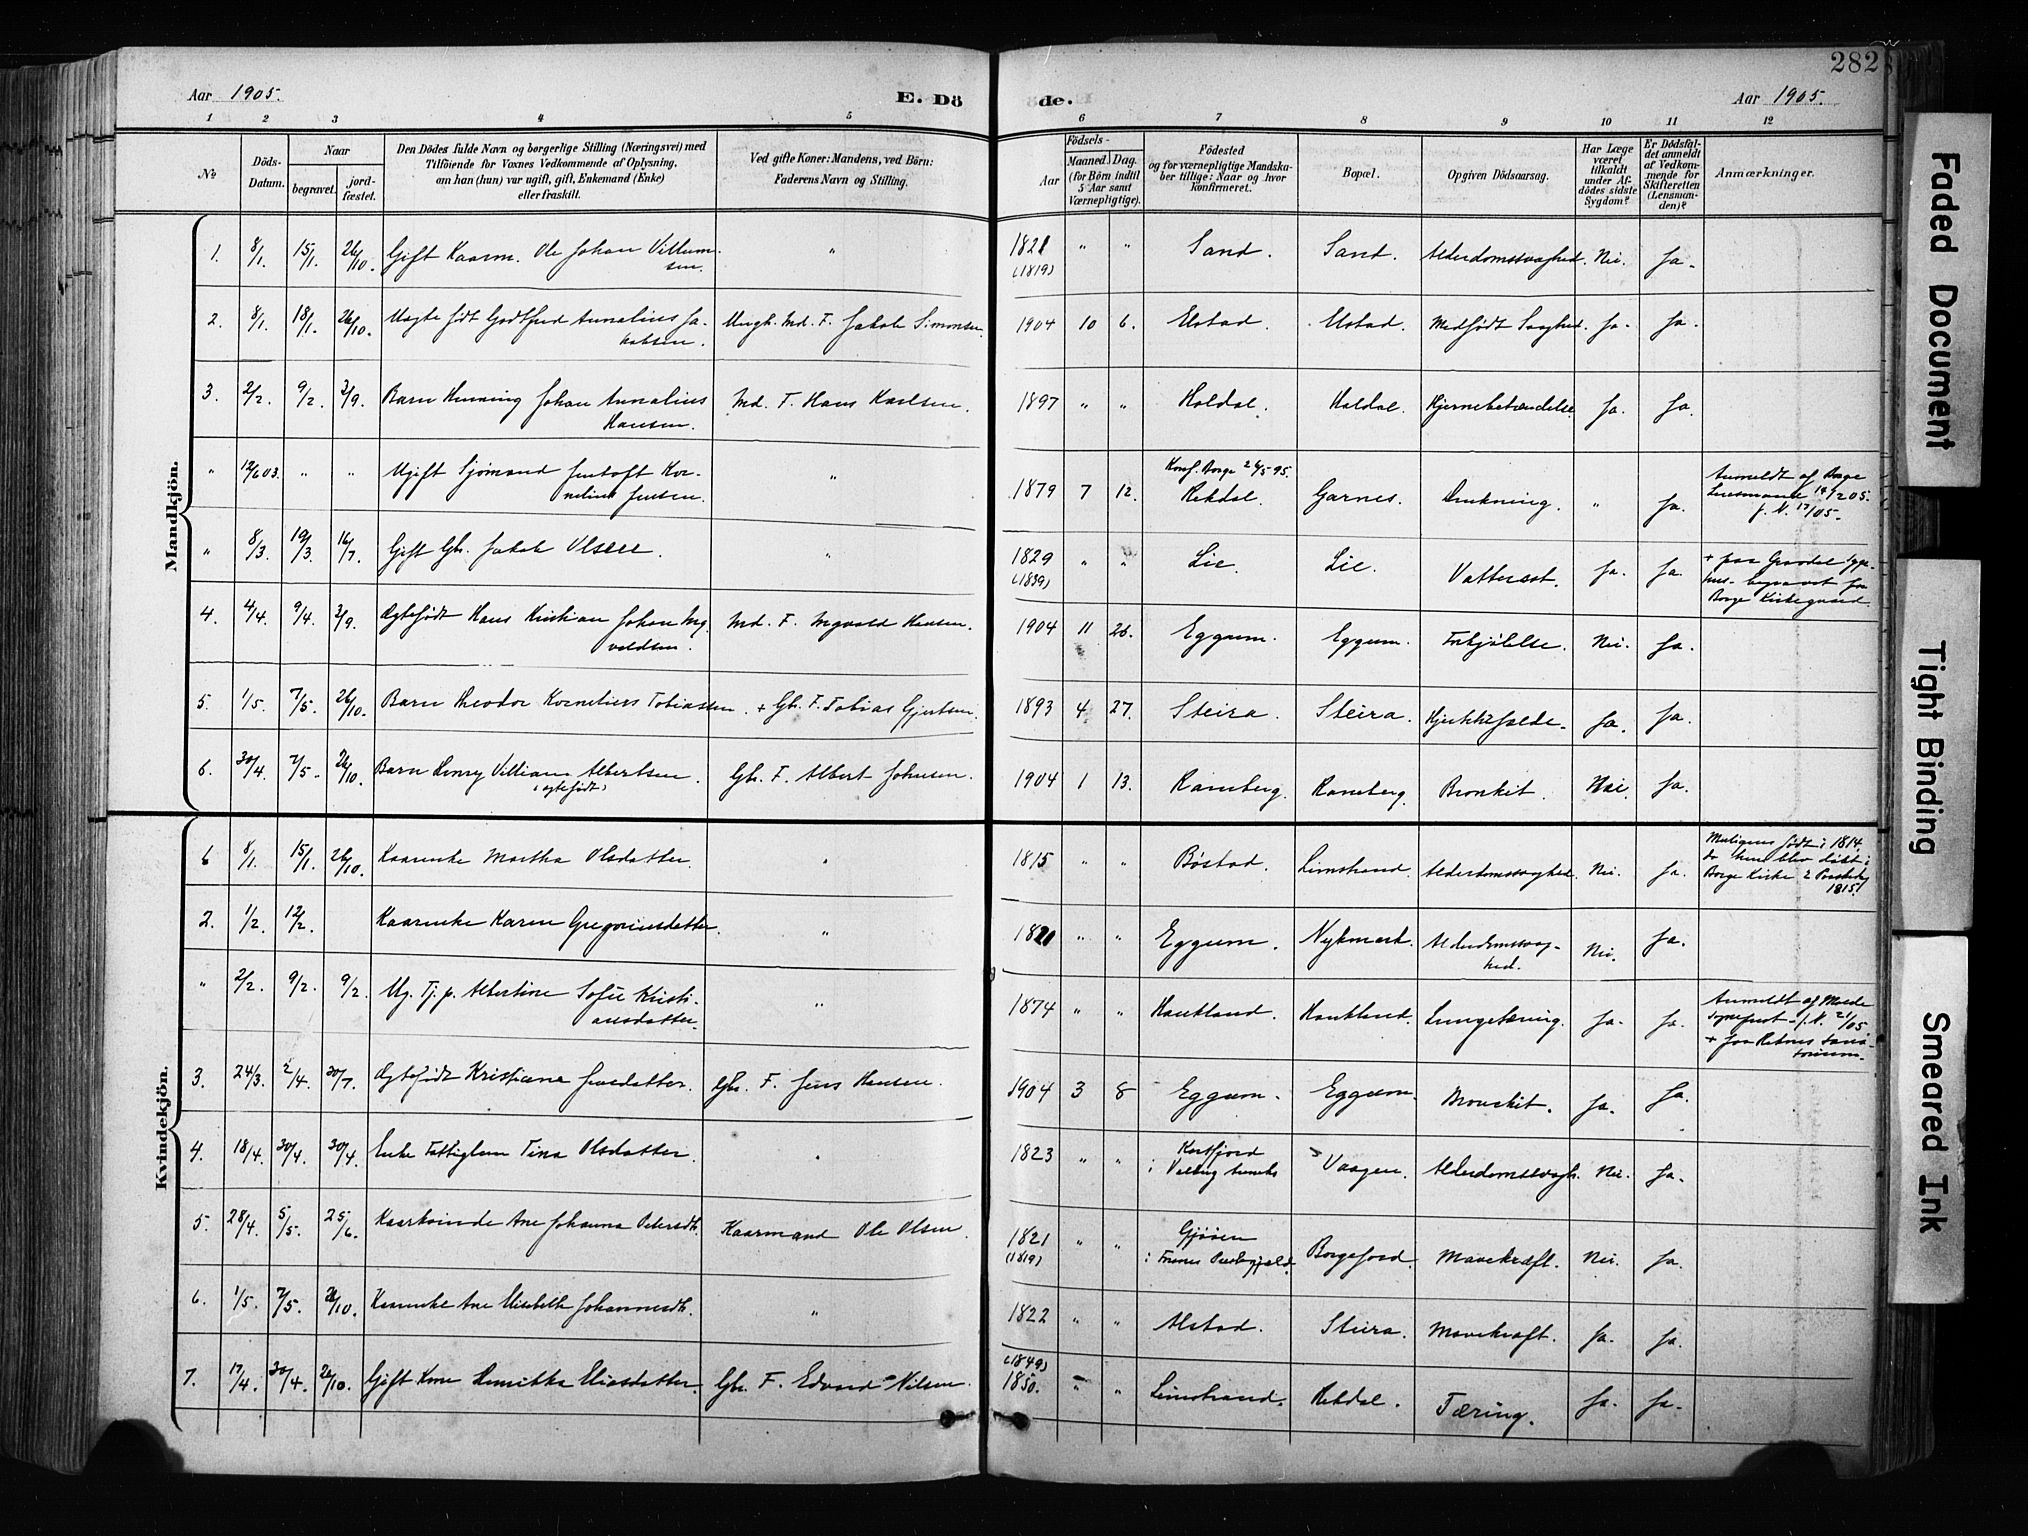 282
Aar 1905.
E. Dö
de.
Aar 1905.
1 2 3 4 5 6 7 8 9 10 11 12
No
Döds-Datum.
Naar
begravet.
jord-fæstet.
Den Dödes fulde Navn og borgerlige Stilling (Næringsvei) med
Tilföiende for Voxnes Vedkommende af Oplysning,
om han (hun) var ugift, gift, Enkemand (Enke)
eller fraskilt.
Ved gifte Koner: Mandens, ved Börn:
Faderens Navn og Stilling.
Födsels-
Aar
Maaned. Dag.
(for Börn indtil
5 Aar samt
Værnepligtige).
Födested
og for værnepligtige Mandska-
ber tillige: Naar og hvor
konfirmeret.
Bopæl.
Opgiven Dödsaarsag.
Har Læge
været
tilkaldt
under Af-
dödes sidste
Sygdom?
Er Dödsfal-
det anmeldt
af Vedkom-
mende for
Skifteretten
(Lensman-
den)?
Anmærkninger.
Mandkjön.
1. 8/1. 15/1. 26/10. Gift Kaarm. Ole Johan Villum-
sen. " 1821 " " Sand. Sand. Alderdomssvaghed. Nei. Ja.
(1819)
2. 8/1. 18/1. 26/10. Uægte født Godtfred Annalius Ja-
kobsen. Ungk. Md. F. Jakob Simonsen 1904 10 6. Alstad. Alstad. Medfödt Svaghed. Ja. Ja.
3. 2/2. 9/2. 3/9. Barn Henning Johan Annalius
Hansen. Md. F. Hans Karlsen. 1897 " " Holdal. Holdal. Hjernebetændelse Ja. Ja.
" 12/6 03. " " Ugift Sjömand Justoft Kor-
nelius Jensen. " 1879 7 12. Konf. Borge 26/5 95.
Rekdal. Garnes. Drukning. " Ja. Anmeldt af Borge
Lensmand 14/2 05.
J. N. 17/05.
" 8/3. 19/3 16/7. Gift Gbr. Jakob Olsen. " 1829 " " Lie. Lie. Vattersot. Ja. Ja.
(1839)
+ paa Gravdal Syge-
hus. begravet paa
Borge Kirkegaard.
4. 4/4. 9/4. 3/9. Ægtefödt Hans Kristian Johan Ing-
valdsen. Md. F. Ingvald Hansen. 1904 11 26. Eggum. Eggum. Forkjölelse. Nei. Ja.
5. 1/5. 7/5. 26/10. Barn Theodor Kornelius Tobiassen. + Gbr. F. Tobias Gjertsen. 1893 4 27. Steira. Steira. Ja. Ja.
6. 30/4. 7/5. 26/10. Barn Henry Villiam Albertsen.
(ægtefödt) Gbr. F. Albert Johnsen. 1904 1 13. Ramberg. Ramberg. Bronkit. Nei. Ja.
Kvindekjön.
6 8/1. 15/1. 26/10. Kaarenke Martha Olsdatter. " 1815 " " Böstad. Limstrand. Alderdomssvaghed. Nei. Ja. Muligens födt i 1814
da hun blev döbt i
Borge Kirke 2
1815.
2. 1/2. 12/2. Kaarenke Karen Gregoriusdatter. " 1821 " " Eggum. Nykmark. Alderdomssvag-
hed. Nei. Ja.
" 2/2. 9/2. 9/2. Ug. Tj. p. Albertine Sofie Kristi-
ansdatter. " 1874 " " Haukland. Haukland. Lungetæring. Ja. Ja. Anmeldt af Molde
Sognepræst J. N. 21/05
+ paa Reknes Sana-
torium.
3. 24/3. 2/4. 30/7. Ægtefödt Kristiane Jensdatter. Gbr. F. Jens Hansen. 1904 3 8 Eggum. Eggum. Bronkit. Ja. Ja.
4. 18/4. 30/4. 30/4. Enke Fattiglem Tina Olsdatter. " 1823 " " Kartfjord
i Valberg Annex Vaagen. Alderdomssvagh. Nei. Ja.
5. 28/4. 5/5. 25/6. Kaarkvinde Ane Johanna Petersdtr. Kaarmand Ole Olsen. 1821 " " Gjöien
(1819) i Præstegjeld. Borgefjord. Mavekræft. Nei. Ja.
6. 1/5. 7/5. 26/10. Kaarenke Ane Elisabeth Johannesdtr. " 1822 " " Alstad. Steira. Mavekræft. Ja. Ja.
7. 17/4. 30/4. 26/10. Gift Kone Henrikka Eliasdatter. Gbr. F. Edvard Nilsen. (1849)
1850. " " Limstrand. Rekdal. Tæring. Ja. Ja.
Faded Document
Tight Binding
Smeared Ink